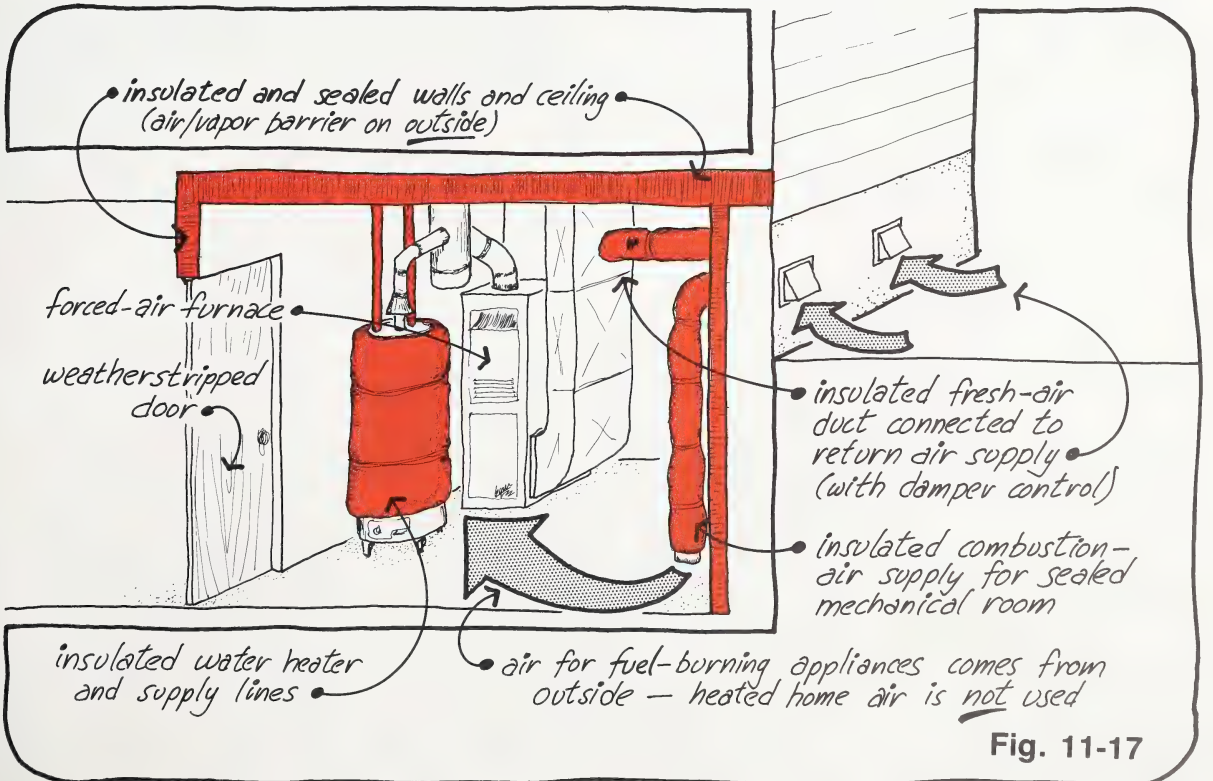 insulated and sealed walls and ceiling
(air/vapor barrier on outside)
forced-air furnace
weatherstripped
door
insulated fresh-air
duct connected to
return air supply
(with damper control)
insulated combustion-
air supply for sealed
mechanical room
insulated water heater
and supply lines
air for fuel-burning appliances comes from
outside — heated home air is not used
Fig. 11-17